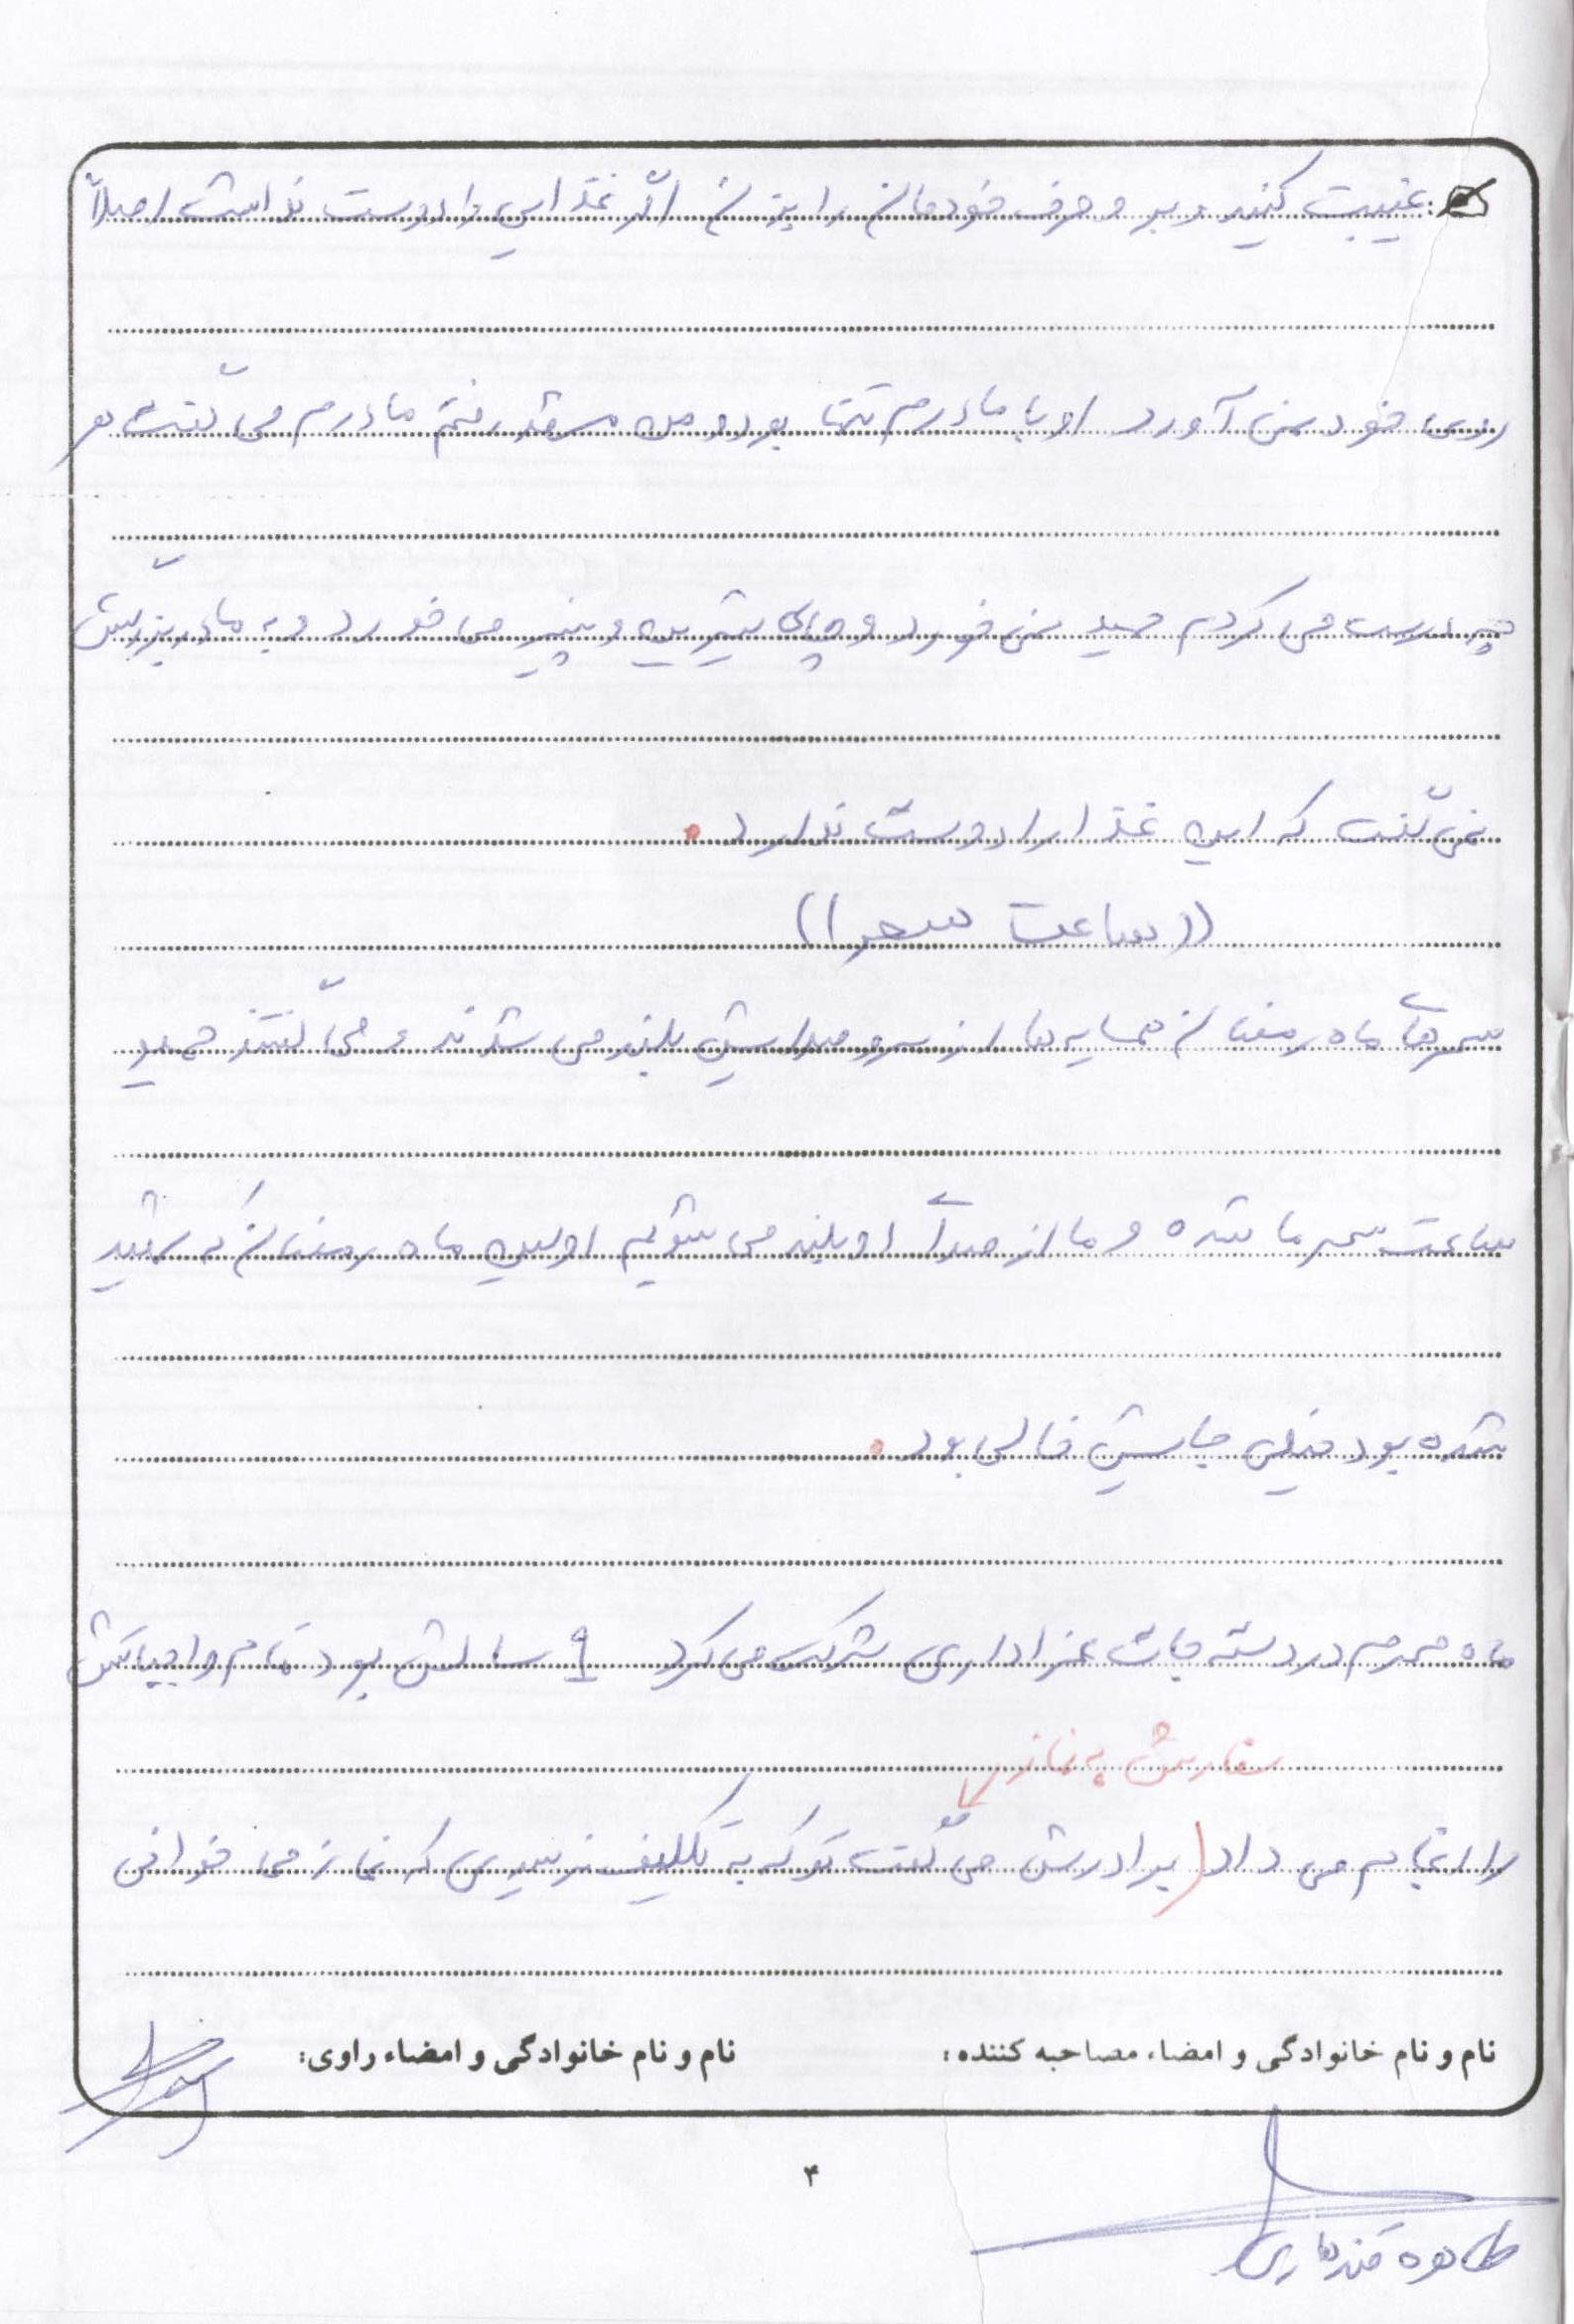 غیبت کنید و بد و حرف خودمان را بزنیم اگر غذایی را دوست نداشت اصلاً
روی خود نمی آورد او با مادرم تنها بود و من مشهد رفتم مادرم می گفت هر
چه درست می کردم حمید نمی خورد و چای شیرین و پنیر می خورد و به مادربزرگش
نمی گفت که این غذا را دوست ندارد .
((ساعت سحر ما))
سحرهای ماه رمضان همسایه ها از سر و صدایش بلند می شدند و می گفتند حمید
ساعت سحر ما شده و ما از صدای او بلند می شویم اولین ماه رمضان که شهید
شده بود خیلی جایش خالی بود .
ماه محرم در دسته جات عزاداری شرکت می کرد ۹ سالش بود تمام واجباتش
سفارش به نماز
را انجام می داد (برادرش می گفت تو که به تکلیف نرسیدی که نماز می خوانی
نام و نام خانوادگی و امضاء مصاحبه کننده: نام و نام خانوادگی و امضاء راوی:
۴
طاهره قندهاری